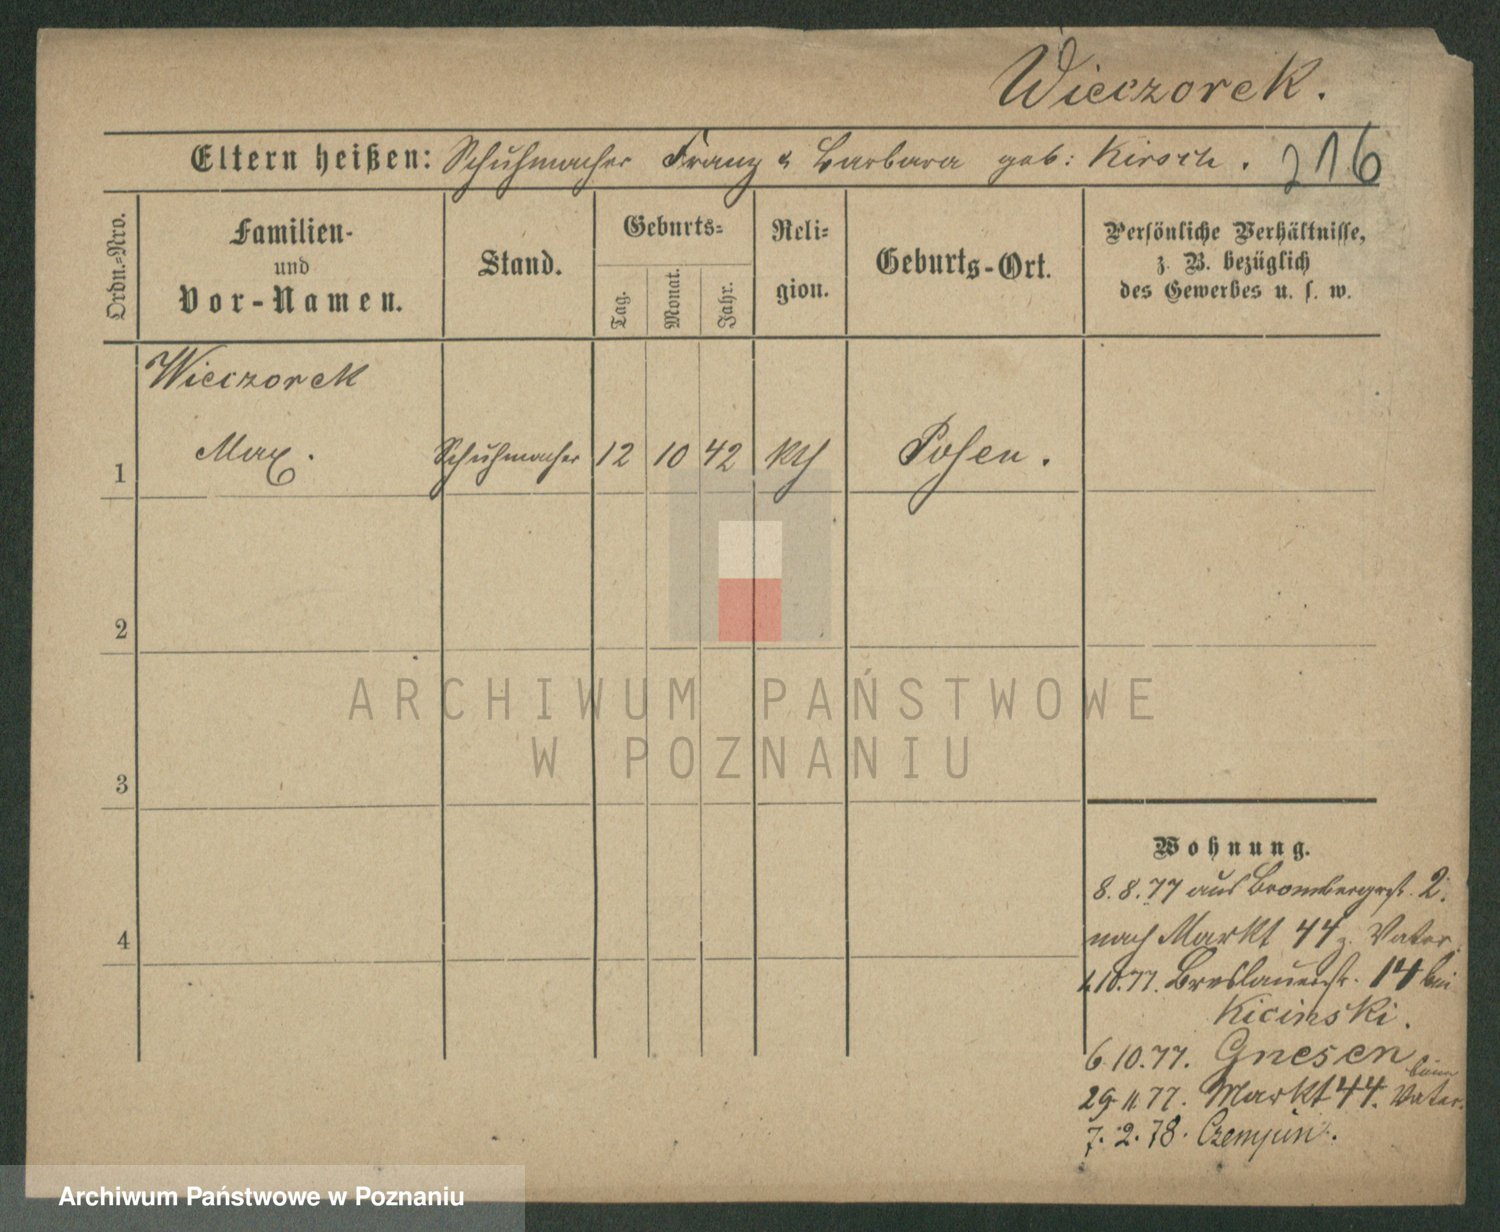 Wieczorek.
Eltern heißen: Schuhmacher Franz & Barbara geb: Kirsch. 216
Ordn.-Nro.
Familien-
und
Vor-Namen.
Stand.
Geburts-
Tag.
Monat.
Jahr.
Reli-
gion.
Geburts-Ort.
Persönliche Verhältnisse,
z. B. bezüglich
des Gewerbes u. s. w.
Wieczorek
1 Max. Schuhmacher 12 10 42 kth Posen.
2
3
4
ARCHIWUM PAŃSTWOWE
W POZNANIU
Wohnung.
8.8.77 aus Brombergrst. 2.
nach Markt 44 z. Vater.
10.77. Breslauerstr. 14 bei
Kicinski.
6 10.77. Gnesen
29 11 77. Markt 44. beim Vater.
7.2.78. Czempin.
Archiwum Państwowe w Poznaniu